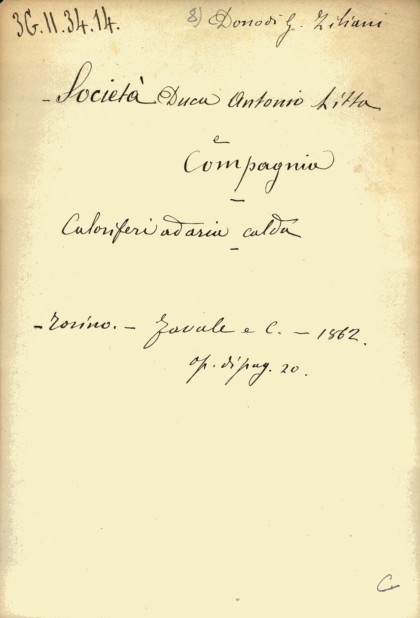 3G.II.34.14. 8) Dono di G. Ziliani
- Società Duca Antonio Litta
e
Compagnia
-
Caloriferi ad aria calda
-
- Torino. - Favale e C. - 1862.
op. di pag. 20.
C